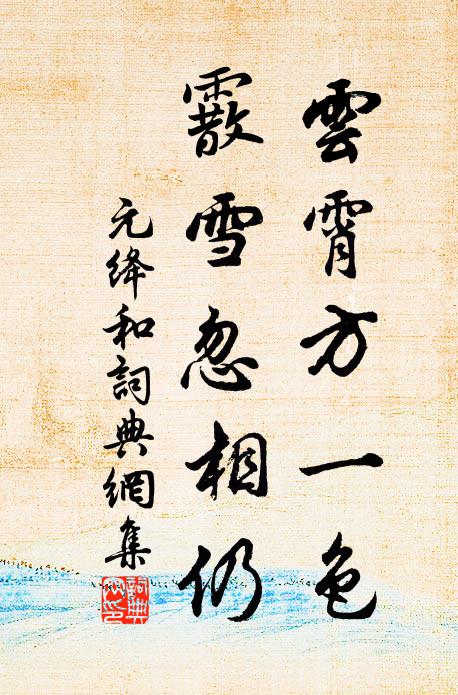 雲霄方一色
霰雪忽相仍
元绛和詞典網集